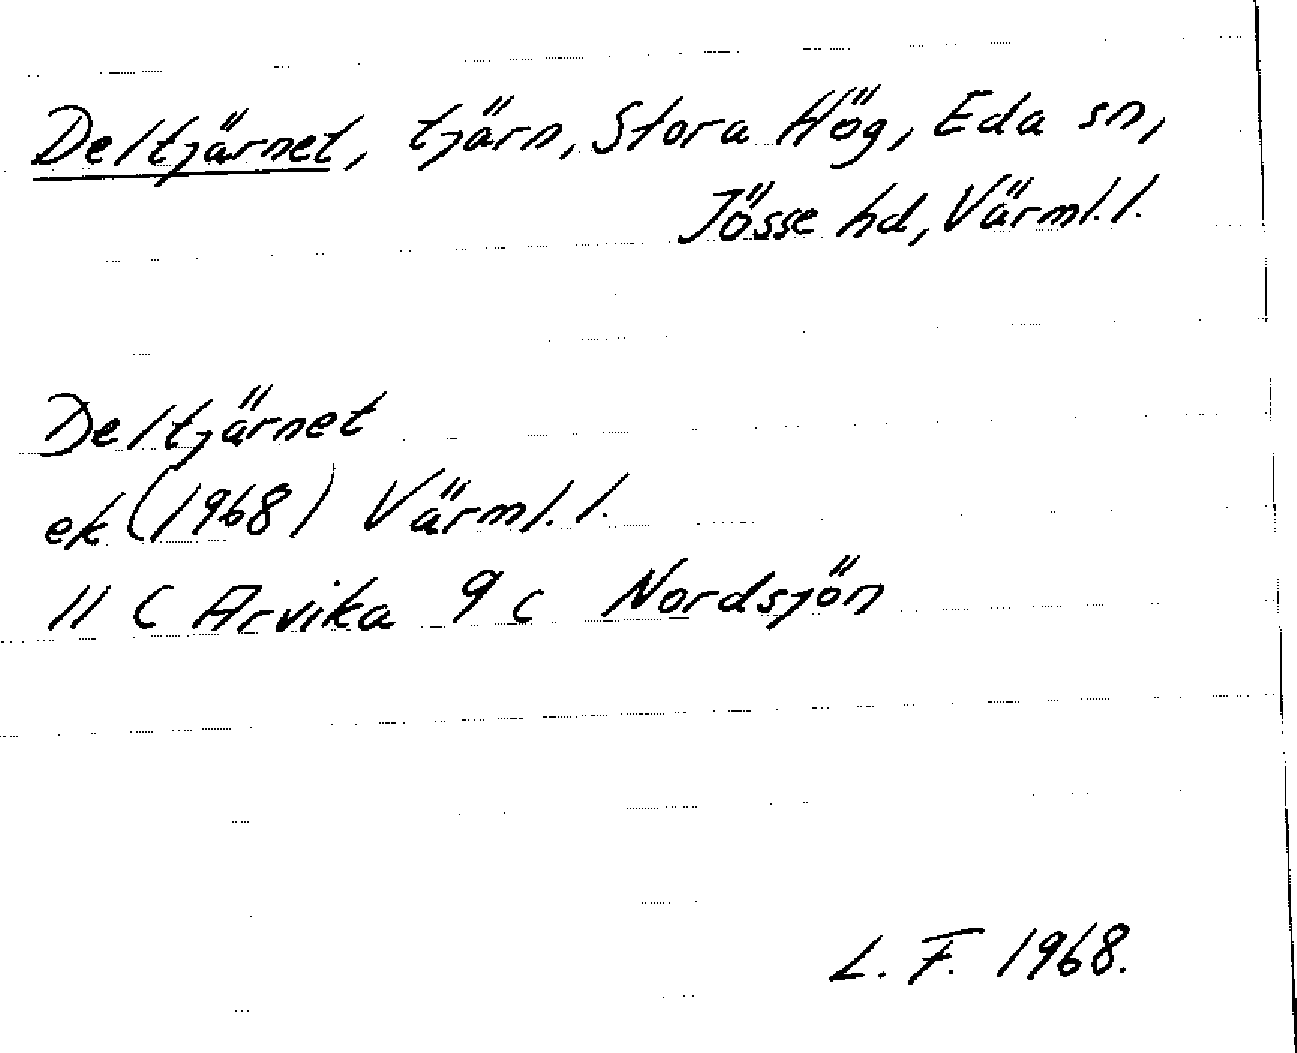 Deltjärnet, tjärn, Stora Hög, Eda sn,
Jösse hd, Värml.l.
Deltjärnet
ek (1968) Värml.l.
11 C Arvika 9 c Nordsjön
L. F. 1968.